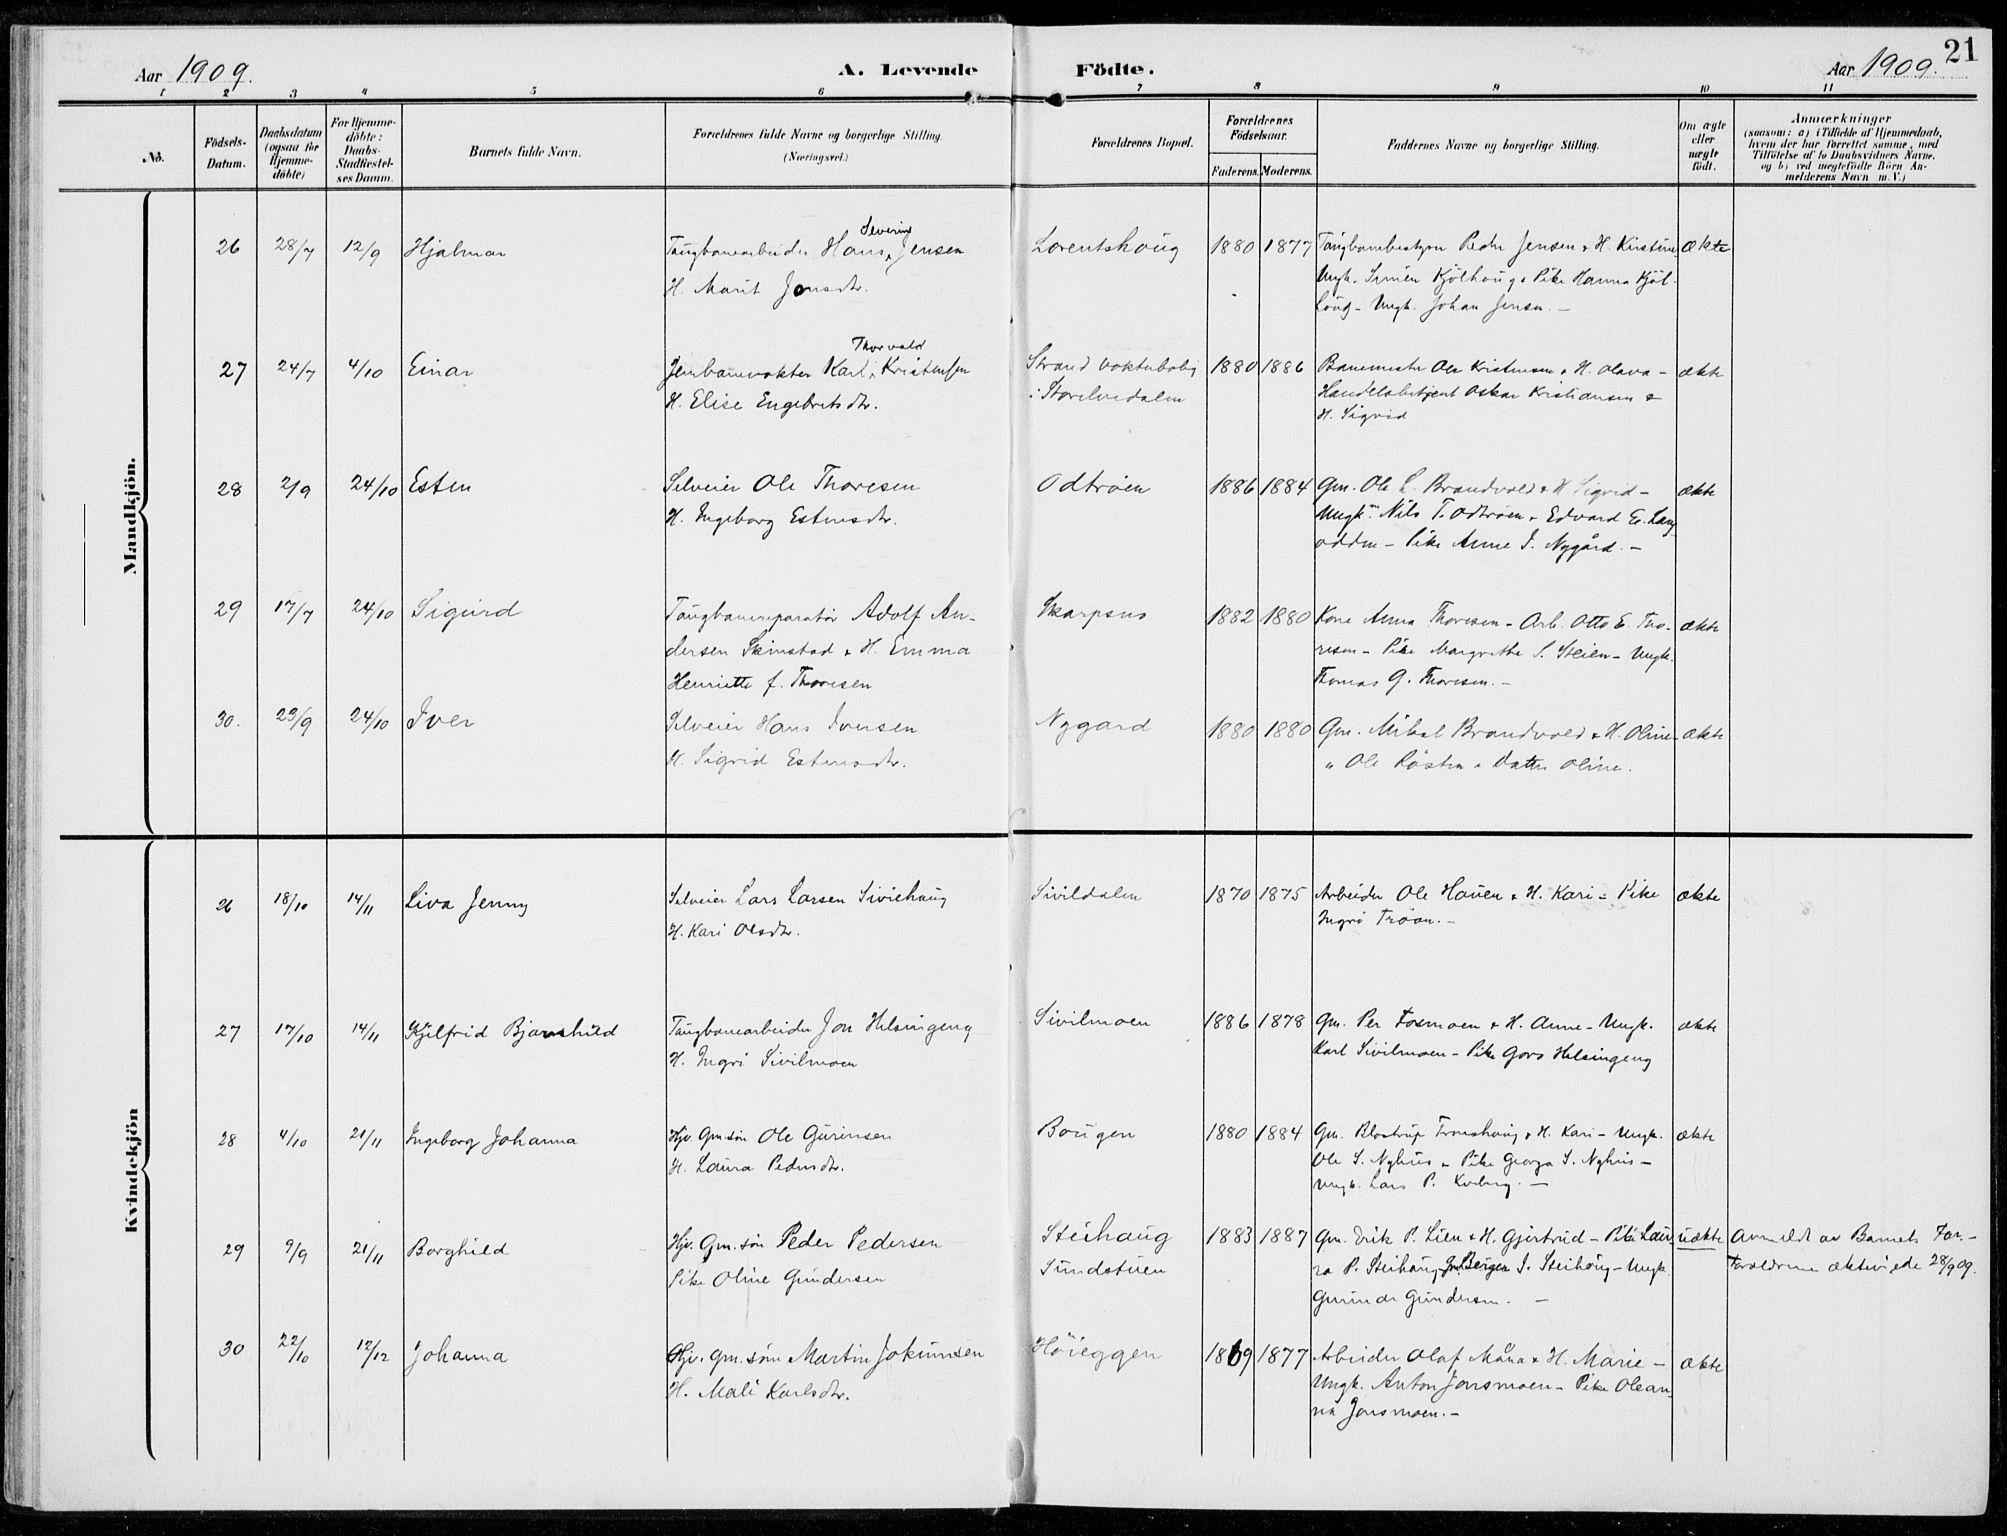 Aar 1909.
A. Levende Födte.
Aar 1909.
21
1 2 3 4 5 6 7 8 9 10 11
No.
Födsels-
Datum.
Daabsdatum
(ogsaa for
Hjemme-
döbte)
For Hjemme-
döbte:
Daabs-
Stadfæstel-
ses Datum.
Barnets fulde Navn.
Forældrenes fulde Navne og borgerlige Stilling.
(Næringsvei.)
Forældrenes Bopæl.
Forældrenes
Födselsaar.
Faderens. Moderens.
Faddernes Navne og borgerlige Stilling.
Om ægte
eller
uægte
födt.
Anmærkninger
(saasom: a) i Tilfælde af Hjemmedaab,
hvem der har forrettet samme, med
Tilföielse af to Daabsvidners Navne,
og b) ved uægtefödte Börn An-
melderens Navn m. V.)
Mandkjön.
26 28/7 12/9 Hjalmar
Severin
Taugbanearbeider Hans Jensen
H. Marit Jonsdtr.
Lorentshoug
1880 1877
Taugbanebestyrer Peder Jensen & H. Kristine
Ungk. Simen Kjölhoug & Pike Hanna Kjöl-
houg - Ungk. Johan Jensen. -
ækte
27 24/7 4/10 Einar
Thorvald
Jernbanevokter Karl Kristensen
H. Elise Engebretsdtr.
Strand vokterbolig
i Storelvedalen
1880 1886
Banemester Ole Kristensen & H. Olava -
Handelsbetjent Oskar Kristiansen &
H. Sigrid
ækte
28 2/9 24/10 Esten
Selveier Ole Thoresen
H. Ingeborg Estensdtr.
Odtröen
1886 1884
Gm. Ole L. Brandvold & H. Sigrid -
Ungk. Nils T. Odtröen & Edvard E. Lang-
odden - Pike Anne J. Nygård. -
ækte
29 17/7 24/10 Sigurd
Taugbanereparatör Adolf An-
dersen Skimstad & H. Emma
Henriette f. Thoresen
Skarpsno
1882 1880
Kone Anna Thoresen - Arb. Otto E. Tho-
resen - Pike Margrethe S. Steien - Ungk.
Thomas G. Thoresen. -
ækte
30. 23/9 24/10 Iver
Selveier Hans Iversen
H. Sigrid Estensdtr.
Nygard
1880 1880
Gm. Mikal Brandvold & H. Oline -
" Ole Rösten & Datter Oline.
ækte
Kvindekjön
26 18/10 14/11 Liva Jenny
Selveier Lars Larsen Siviehaug
H. Kari Olsdtr.
Sivildalen
1870 1875
Arbeider Ole Hauen & H. Kari - Pike
Ingri Tröan. -
ækte
27 17/10 14/11 Kjelfrid Bjarnhild
Taugbanearbeider Jon Helsingeng
H. Ingri Sivilmoen
Sivilmoen
1886 1878
Gm. Per Tosmoen & H. Anne - Ungk.
Karl Sivilmoen - Pike Goro Helsingeng
ækte
28 4/10 21/11 Ingeborg Johanna
Hjv. Gm.sön Ole Gurinsen
H. Laura Pedersdtr.
Bougen
1880 1884
Gm. Blostrup Tronshaug & H. Kari - Ungk.
Ole S. Nyhus & Pike Georga S. Nyhus -
Ungk. Lars P. Koberg. -
ækte
29 9/9 21/11 Borghild
Hjv. Gm. sön Peder Pedersen
Pike Oline Gundersen
Steihaug
Sundstuen
1883 1887
Gm. Erik P. Lien & H. Gjertrud - Pike Lau-
ra P. Steihaug, Gm. Berger J. Steihoug - Ungk.
Gunnar Gundersen. -
uækte
Anmeldt av Barnets Far. -
Foreldrene ækteviede 28/9 09.
30 22/10 12/12 Johanna
Hjv. Gm. sön Martin Jokumsen
H. Mali Karlsdtr.
Höieggen
1869 1877
Arbeider Olaf Måna & H. Marie -
Ungk. Anton Jonsmoen - Pike Olean-
na Jonsmoen. -
ækte